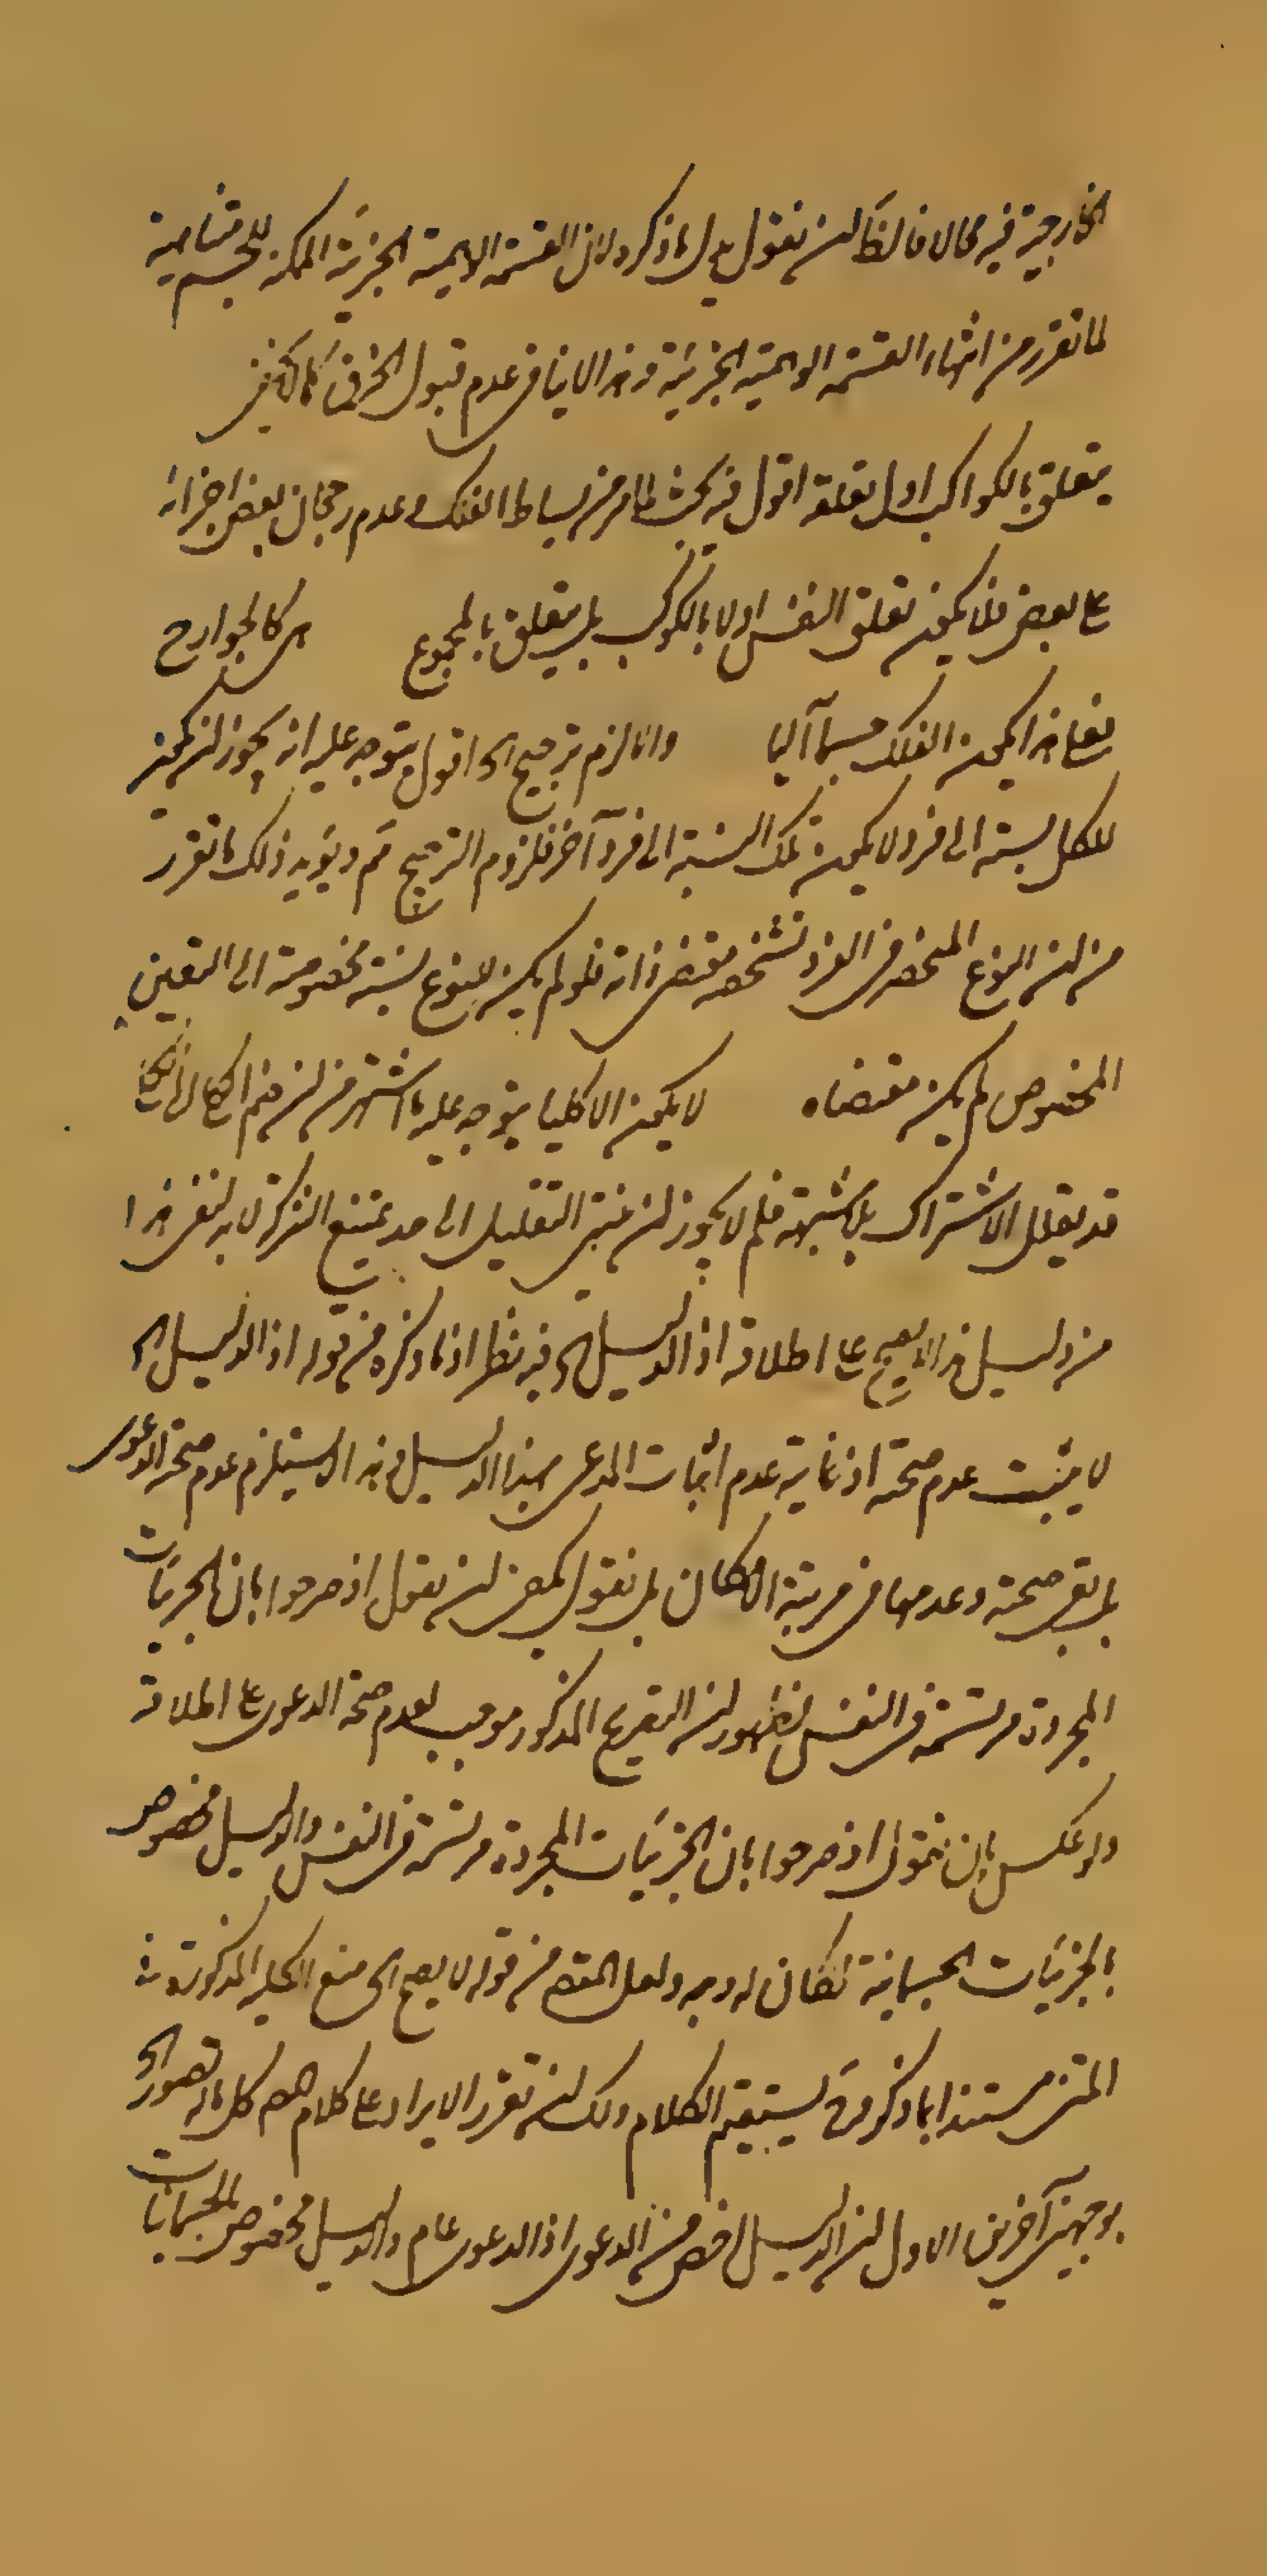 الخارجية فيه محال فالظاهر ان نقول بدل ما ذكره لان القسمة الوهمية الجزئية الممكنة للجسم متناهية
لما تقرر من انتهاء القسمة الوهمية الجزئية وهذا لا ينافى عدم قبول الخرق كما لا يخفى
يتعلق بالكواكب اول تعلقه اقول فيه بحث لما مر من بساطة الفلك وعدم رجحان بعض اجزائه
على بعض فلا يكون تعلق النفس اولا بالكوكب بل يتعلق بالمجموع هى كالجوارح
فعلى هذا يكون الفلك جسما آليا والا لزم ترجيح الخ اقول يتوجه عليه انه يجوز ان يكون
للكل نسبة الى فرد لا يكون تلك النسبة الى فرد آخر فلزوم الترجيح مم ويؤيد ذلك ما تقرر
من ان النوع المنحصر فى الفرد تشخصه مقتضى ذاته فلو لم يكن للنوع نسبة مخصوصة الى التعين
المخصوص لم يكن مقتضاه لا يكون الا كليا يتوجه عليه ما اشتهر من ان ضم الكلى الى الكلى
قد يقلل الاشتراك بلا شبهة فلم لا يجوز ان ينتهى التقليل الى حد يمتنع الشركة لا بد لنفى هذا
من دليل هذا لا يصح على اطلاقه اذ الدليل الخ فيه نظر اذ ما ذكره من قوله اذ الدليل الخ
لا يثبت عدم صحته اذ غايته عدم اثبات المدعى بهذا الدليل وهذا لا يستلزم عدم صحة الدعوى
بل بقى صحته وعدمها فى مرتبة الامكان بل نقول يكفى ان نقول اذ صرحوا بان الجزئيات
المجردة مرتسمة فى النفس لظهور ان التصريح المذكور موجب لعدم صحة الدعوى على اطلاقه
ولو عكس بان نقول اذ صرحوا بان الجزئيات المجردة مرتسمة فى النفس والدليل مخصوص
بالجزئيات الجسمانية لكان له وجه ولعل المقصود من قوله لا يصح الخ منع الكلية المذكورة فى
المتن مستندا بما ذكر وح يستقيم الكلام ولك ان تقرر الايراد على كلام المص كل ما له تصور الخ
بوجهين آخرين الاول ان الدليل اخص من الدعوى اذ الدعوى عام والدليل مخصوص بالجسمانيات